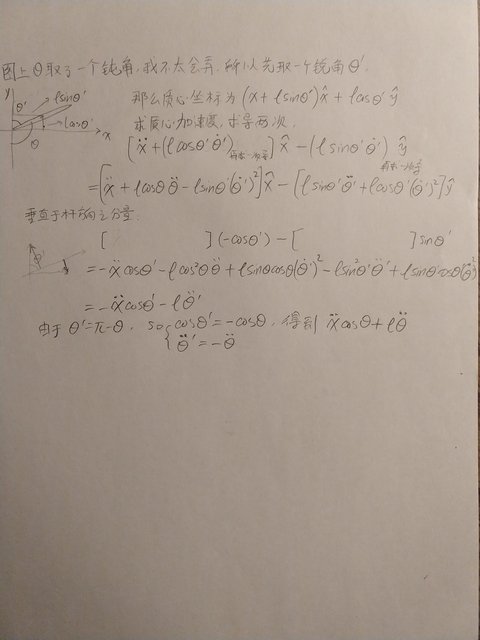 图上θ取了一个钝角,我不太会弄,所以先取一个锐角θ'.
y
θ'
lsinθ'
lcosθ'
x
θ
那么质心坐标为(x+lsinθ')x̂+lcosθ'ŷ
求质心加速度,求导两次,
[ẍ+(lcosθ'θ̇')再求一次导]x̂-(lsinθ'θ̇')再求一次导ŷ
=[ẍ+lcosθθ̈-lsinθ'(θ̇')²]x̂-[lsinθ'θ̈'+lcosθ'(θ̇')²]ŷ
垂直于杆方向之分量:
[ ](-cosθ')-[ ]sinθ'
θ'
=-ẍcosθ'-lcos²θθ̈+lsinθcosθ(θ̇')²-lsin²θ'θ̈'+lsinθ'cosθ(θ̇')²
=-ẍcosθ'-lθ̈'
由于θ'=π-θ, so{cosθ'=-cosθ, 得到 ẍcosθ+lθ̈
θ̈'=-θ̈